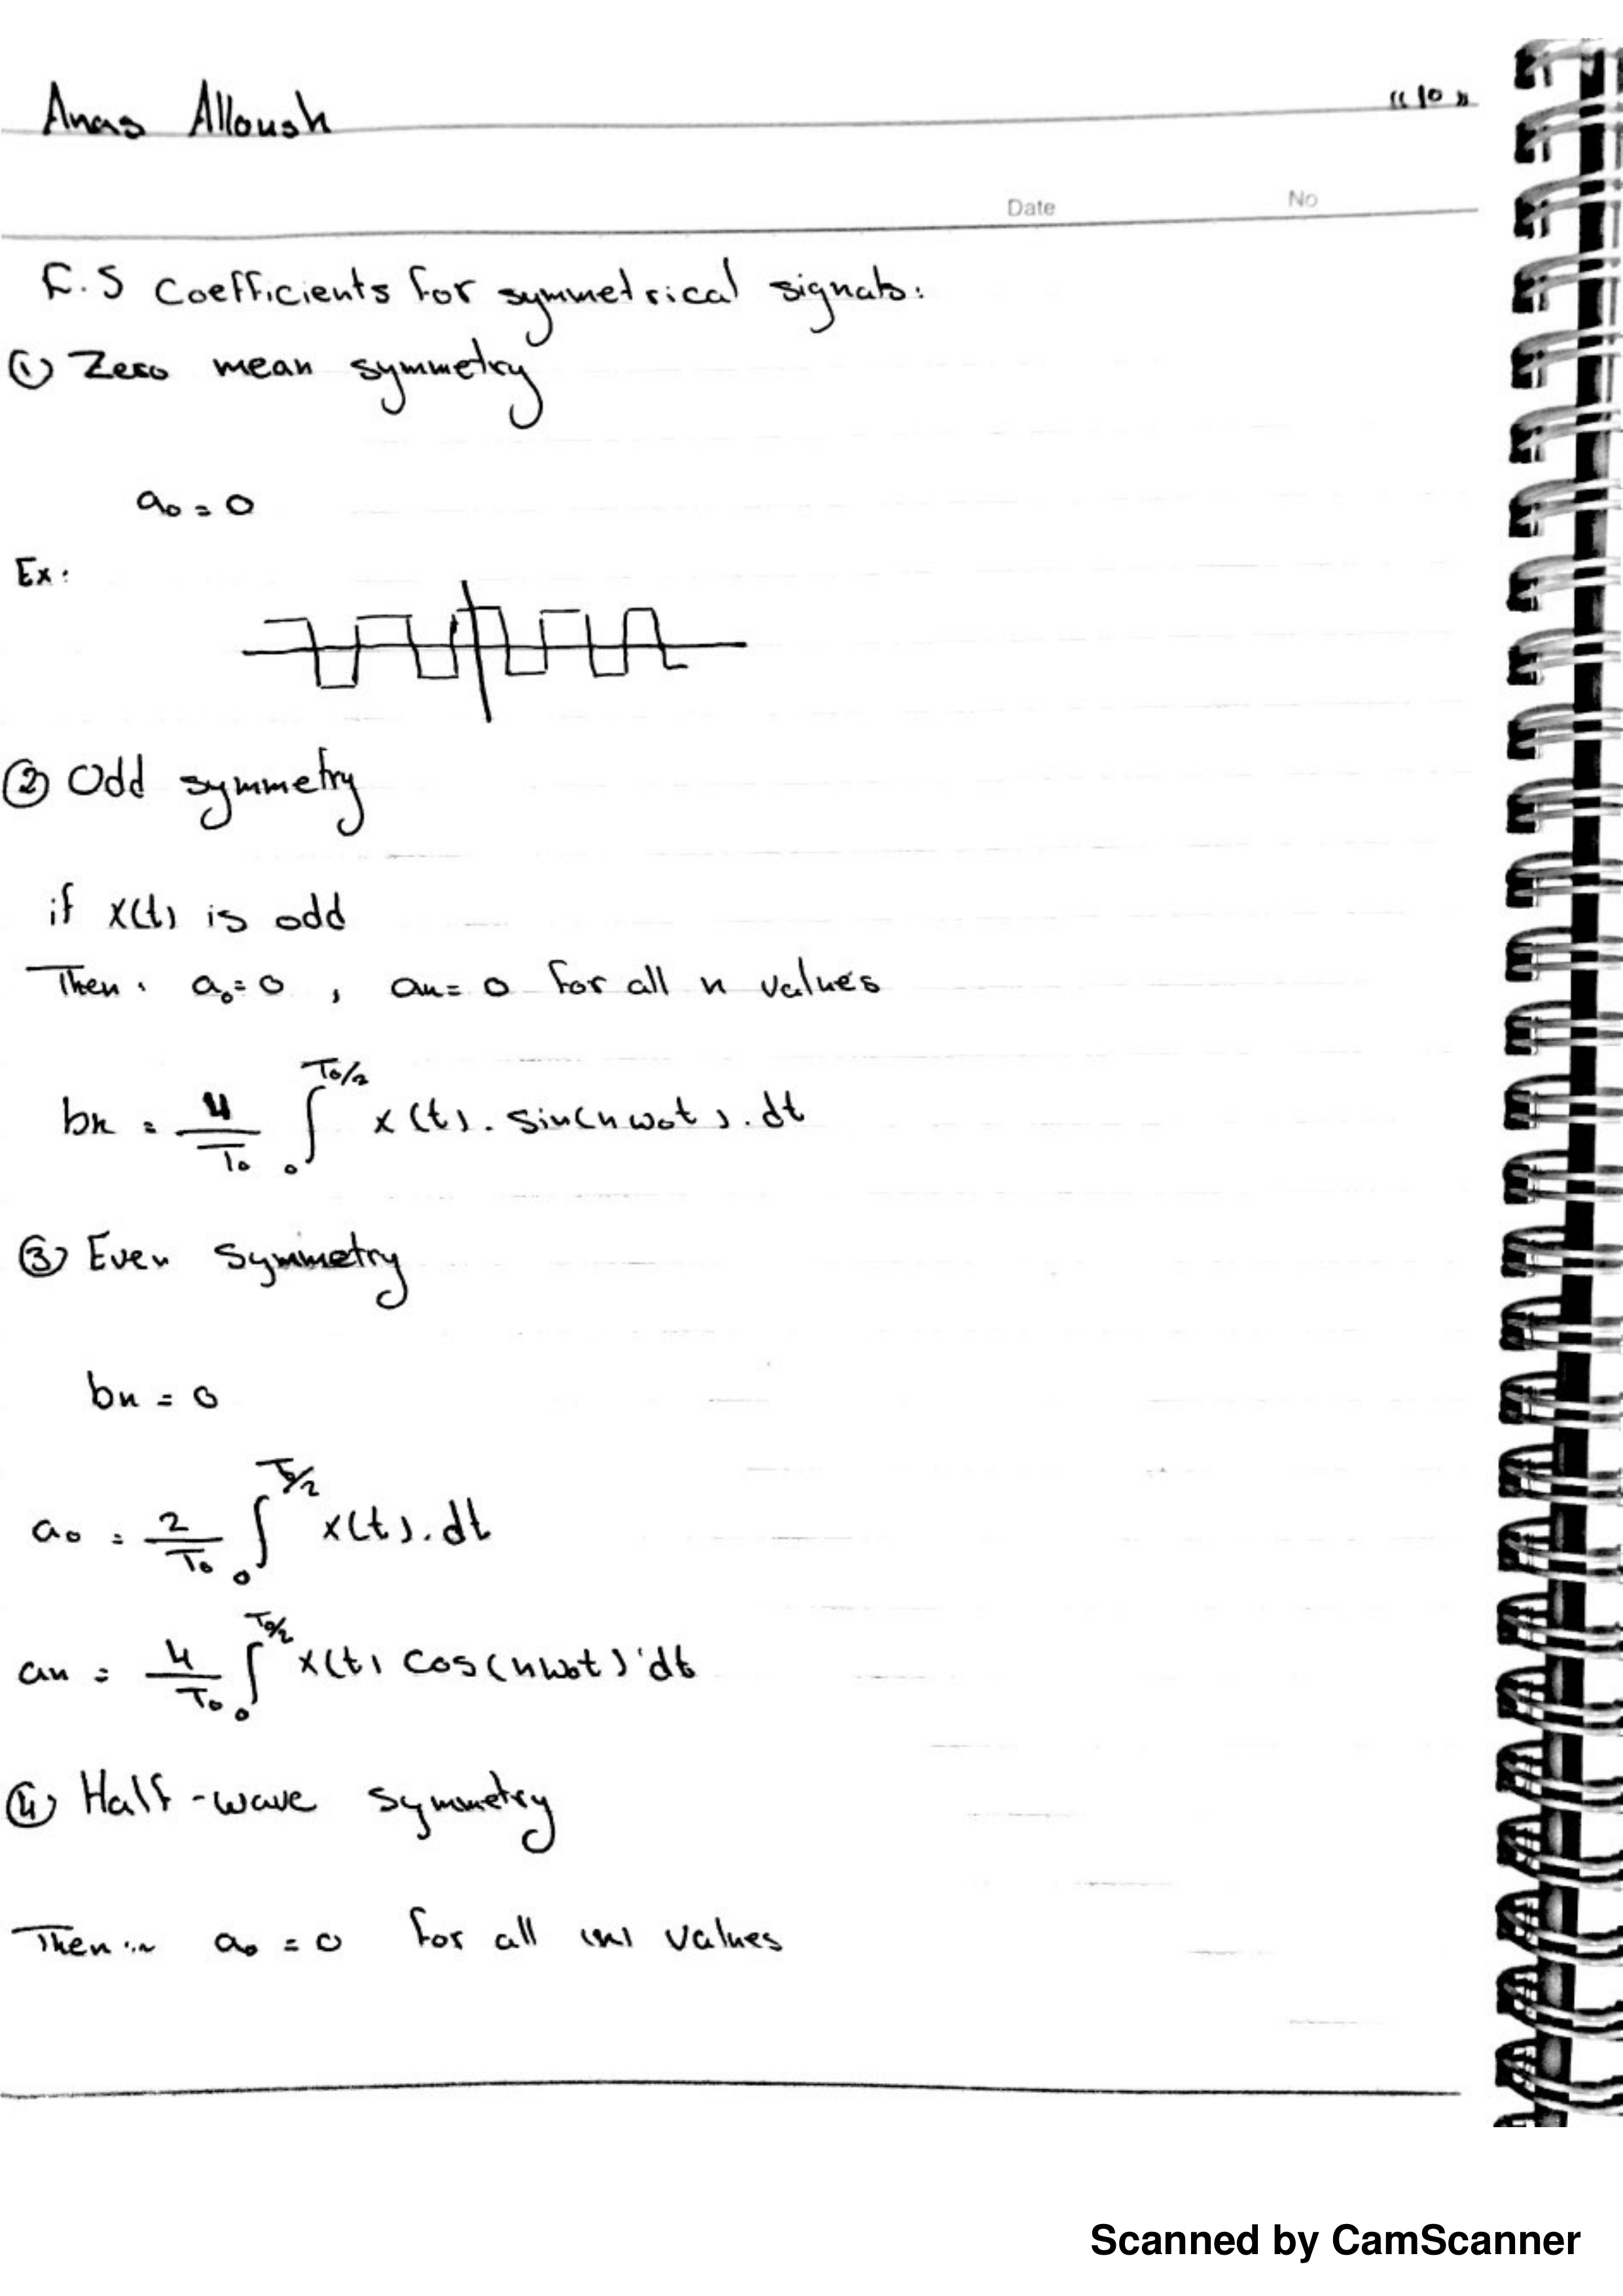 Anas Alloush
"10"
Date No
F.S Coefficients for symmetrical signals:
① Zero mean symmetry
a₀ = 0
Ex:
② Odd symmetry
if x(t) is odd
Then: a₀=0 , an=0 for all n values
bn = 4/T₀ ∫₀^{T₀/2} x(t). sin(nω₀t). dt
③ Even symmetry
bn = 0
a₀ = 2/T₀ ∫₀^{T₀/2} x(t). dt
an = 4/T₀ ∫₀^{T₀/2} x(t) cos(nω₀t) dt
④ Half-wave symmetry
Then: a₀ = 0 for all (n) values
Scanned by CamScanner